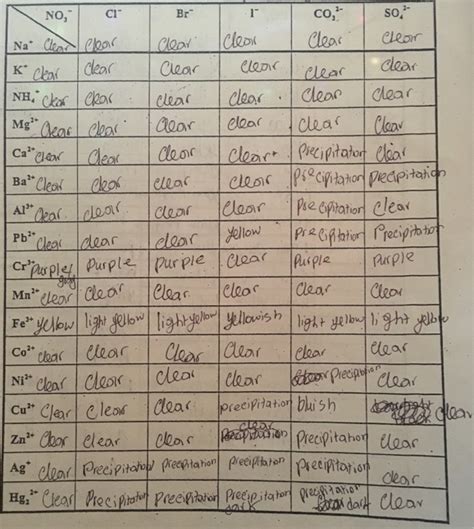 NO₃⁻ Cl⁻ Br⁻ I⁻ CO₃²⁻ SO₄²⁻
Na⁺ Clear Clear Clear Clear Clear Clear
K⁺ Clear Clear Clear Clear Clear Clear
NH₄⁺ Clear Clear Clear Clear Clear Clear
Mg²⁺ Clear Clear Clear Clear Clear Clear
Ca²⁺ Clear Clear Clear Clear Precipitation Clear
Ba²⁺ Clear Clear Clear Clear Precipitation Precipitation
Al³⁺ Clear Clear Clear Clear Precipitation Clear
Pb²⁺ Clear Clear Clear Yellow Precipitation Precipitation
Cr³⁺ Purple/ Purple Purple Clear Purple Purple
Mn²⁺ Clear Clear Clear Clear Clear Clear
Fe³⁺ Yellow light yellow light yellow Yellowish light yellow light yellow
Co²⁺ Clear Clear Clear Clear Clear Clear
Ni²⁺ Clear Clear Clear Clear Precipitation Clear
Cu²⁺ Clear Clear Clear precipitation bluish Clear
Zn²⁺ Clear Clear Clear Clear Precipitation Clear
Ag⁺ Clear Precipitation Precipitation Precipitation Precipitation Clear
Hg₂²⁺ Clear Precipitation Precipitation Precipitation dark Precipitation dark Clear